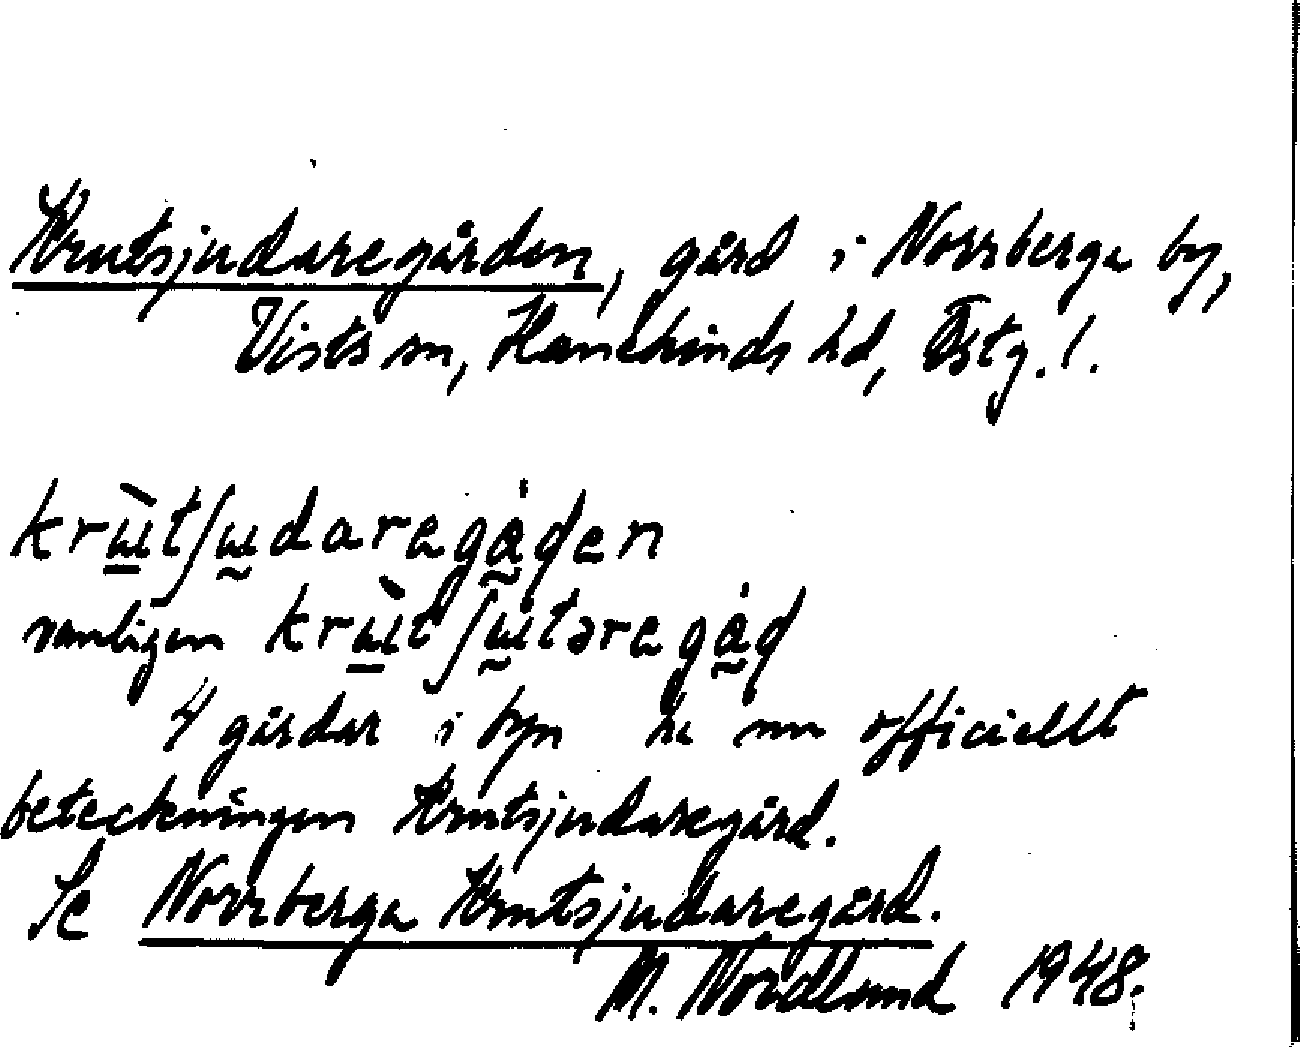 Krutsjudaregården, gård i Norrberga by,
Vists sn, Hanekinds hd, Östg. l.
krɯ̀tʃɯdaregå̍ɖen
vanligen krɯ̀tʃɯtəregå̍ɖ
4 gårdar i byn ha nu officiellt
beteckningen Krutsjudaregård.
Se Norrberga Krutsjudaregård.
M. Nordlund 1948.